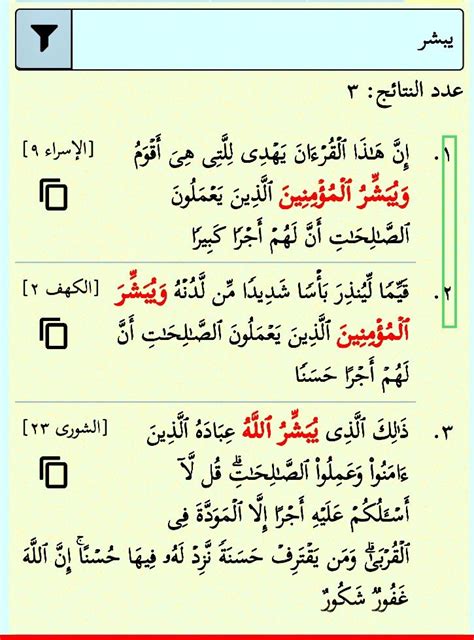 يبشر
عدد النتائج: ٣
١. إِنَّ هَٰذَا ٱلْقُرْءَانَ يَهْدِى لِلَّتِى هِىَ أَقْوَمُ [الإسراء ٩]
وَيُبَشِّرُ ٱلْمُؤْمِنِينَ ٱلَّذِينَ يَعْمَلُونَ
ٱلصَّـٰلِحَـٰتِ أَنَّ لَهُمْ أَجْرًا كَبِيرًا
٢. قَيِّمًا لِّيُنذِرَ بَأْسًا شَدِيدًا مِّن لَّدُنْهُ وَيُبَشِّرَ [الكهف ٢]
ٱلْمُؤْمِنِينَ ٱلَّذِينَ يَعْمَلُونَ ٱلصَّـٰلِحَـٰتِ أَنَّ
لَهُمْ أَجْرًا حَسَنًا
٣. ذَٰلِكَ ٱلَّذِى يُبَشِّرُ ٱللَّهُ عِبَادَهُ ٱلَّذِينَ [الشورى ٢٣]
ءَامَنُوا۟ وَعَمِلُوا۟ ٱلصَّـٰلِحَـٰتِ ۗ قُل لَّآ
أَسْـَٔلُكُمْ عَلَيْهِ أَجْرًا إِلَّا ٱلْمَوَدَّةَ فِى
ٱلْقُرْبَىٰ ۗ وَمَن يَقْتَرِفْ حَسَنَةً نَّزِدْ لَهُۥ فِيهَا حُسْنًا ۚ إِنَّ ٱللَّهَ
غَفُورٌ شَكُورٌ